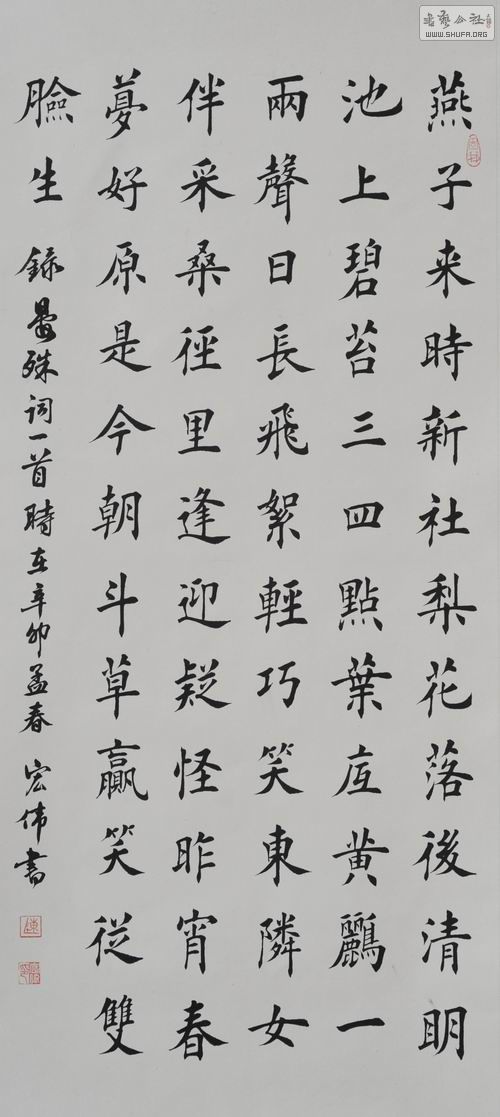 燕子来時新社梨花落後清明
池上碧苔三四點葉底黄鸝一
兩聲日長飛絮輕巧笑東隣女
伴采桑徑里逢迎疑怪昨宵春
夢好原是今朝斗草贏笑從雙
臉生 録晏殊词一首時在辛卯孟春 宏伟書
書藝公社
WWW.SHUFA.ORG